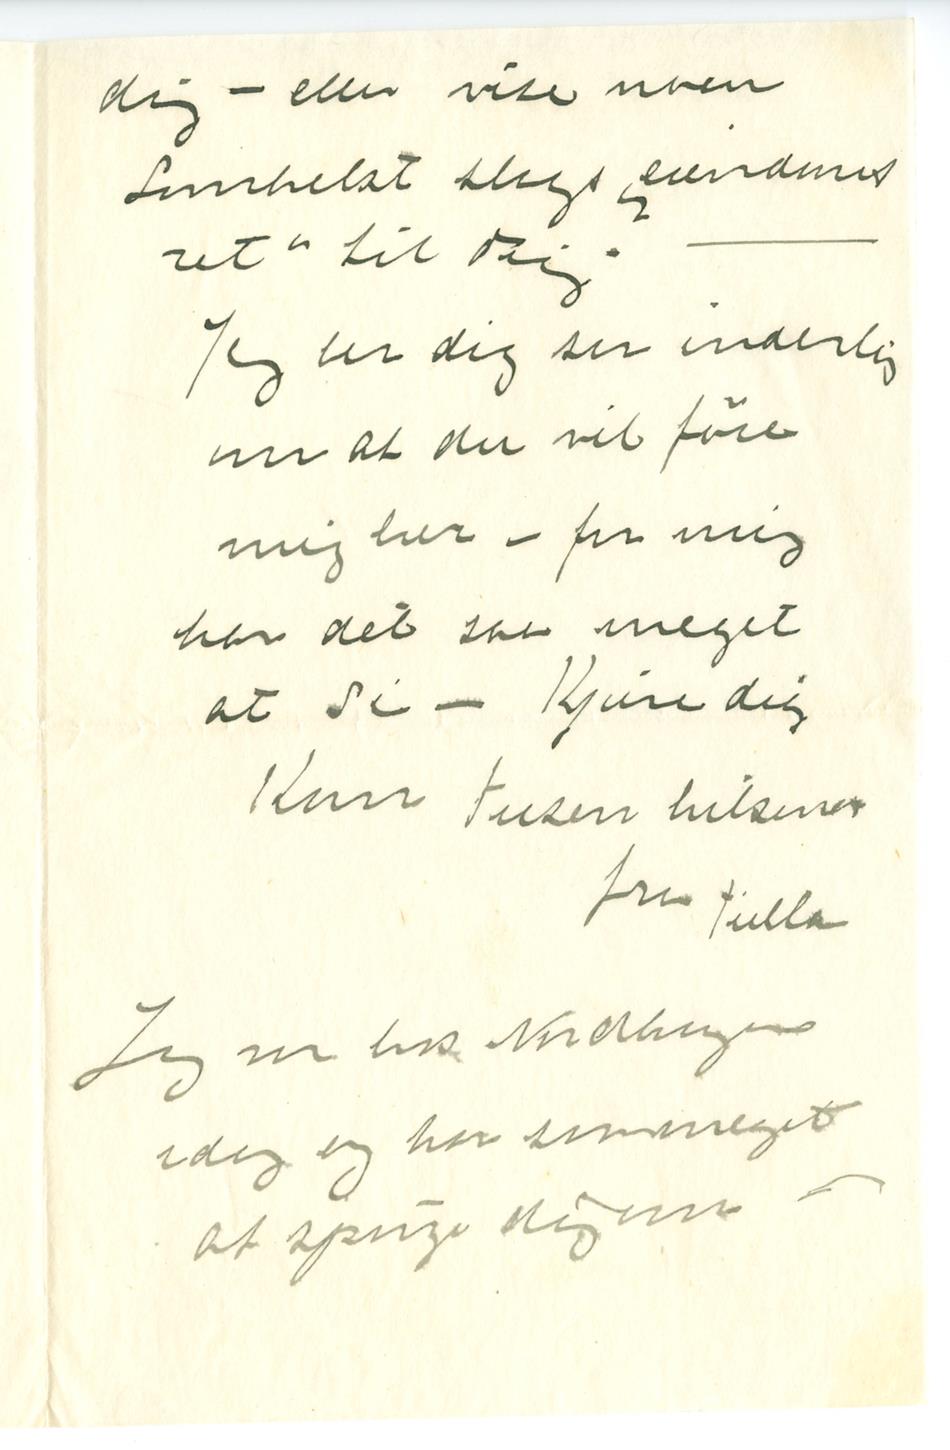 dig – eller vise noen
somhelst slags „eiendoms
ret" til Dig. —
Jeg ber dig saa inderlig
om at du vil føre
mig her – for mig
har det saa meget
at Si – Kjære dig
Kom tusen hilsener
fra Tulla
Jeg var hos Nordhagens
idag og har saa meget
at spørge dig om –